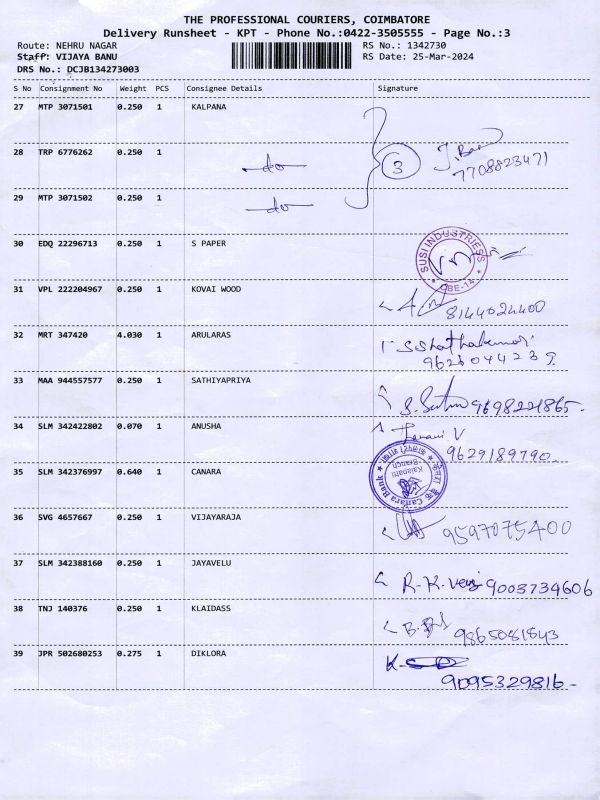 THE PROFESSIONAL COURIERS, COIMBATORE
Delivery Runsheet - KPT - Phone No.:0422-3505555 - Page No.:3
Route: NEHRU NAGAR RS No.: 1342730
Staff: VIJAYA BANU RS Date: 25-Mar-2024
DRS No.: DCJB134273003
S No Consignment No Weight PCS Consignee Details Signature
27 MTP 3071501 0.250 1 KALPANA
28 TRP 6776262 0.250 1 do 3
7708823471
29 MTP 3071502 0.250 1 do
30 EDQ 22296713 0.250 1 S PAPER SUSI INDUSTRIESS CBE-14
31 VPL 222204967 0.250 1 KOVAI WOOD
8144024400
32 MRT 347420 4.030 1 ARULARAS
9626044239
33 MAA 944557577 0.250 1 SATHIYAPRIYA
9698221865
34 SLM 342422802 0.070 1 ANUSHA
9629189790
35 SLM 342376997 0.640 1 CANARA Canara Bank Kalapatti Branch
36 SVG 4657667 0.250 1 VIJAYARAJA 9597075400
37 SLM 342388160 0.250 1 JAYAVELU
9003734606
38 TNJ 140376 0.250 1 KLAIDASS
9865081843
39 JPR 502680253 0.275 1 DIKLORA
9095329816-